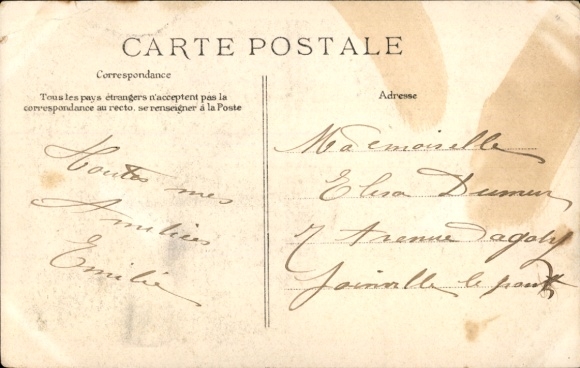 CARTE POSTALE
Correspondance
Tous les pays étrangers n'acceptent pas la
correspondance au recto. se renseigner à la Poste
Adresse
Toutes mes
Amitiées
Emilie
Mademoiselle
Elisa
7 Avenue
Joinville le pont